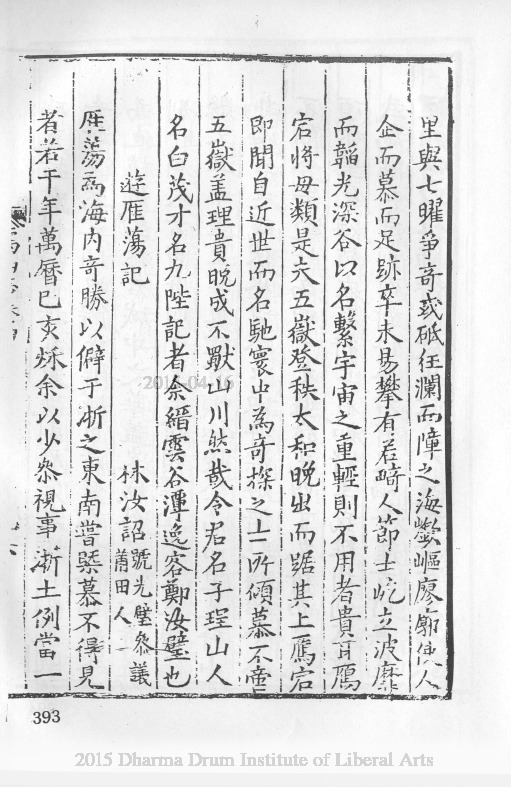 里與七曜爭奇或砥狂瀾而障之海㠜嶇廖廓使人
企而慕而足跡卒未易攀有若畸人節士屹立波靡
而韜光深谷以名繫宇宙之重輕則不用者貴耳鴈
宕將毋類是夫五嶽登秩太和晚出而踞其上鴈宕
即聞自近世而名馳寰中為奇探之士所傾慕不啻
五嶽盖理貴晚成不獸山川然哉令君名子珵山人
名白茂才名九陛記者余縉雲谷運逸客鄭汝璧也
遊雁蕩記
林汝詔號光璧叅議
莆田人
雁蕩為海內奇勝以僻于浙之東南嘗㮣慕不得見
者若干年萬曆巳亥秌余以少叅視事浙土例當一
393
2015-04-16
2015 Dharma Drum Institute of Liberal Arts